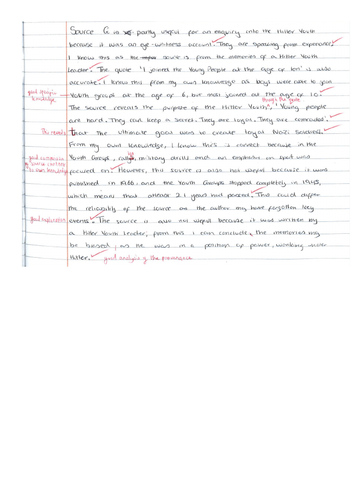 Source G is partly useful for an enquiry into the Hitler Youth
because it was an eye-witness account. They are speaking from experience.
I know this as the source is from the memories of a Hitler Youth
Leader. The quote 'I joined the Young People at the age of ten' is also
accurate. I know this from my own knowledge as boys were able to join
good use of own knowledge
Youth groups at the age of 6, but most joined at the age of 10.
The source reveals the purpose of the Hitler Youth, through the quote "Young people
are hard. They can keep a secret. They are loyal. They are comrades."
This reveals that the ultimate goal was to create loyal Nazi soldiers.
From my own knowledge, I know this is correct because in the
good connection to source content to own knowledge
Youth Groups, military drills and an emphasis on sport was
focused on. However, this source is also not useful because it was
published in 1966 and the Youth Groups stopped completely in 1945,
which means that atleast 21 years had passed. This could affect
the reliability of the source as the author may have forgotten key
good explanation
events. The source is also not useful because it was written by
a Hitler Youth Leader, from this I can conclude, the memories may
be biased, as he was in a position of power, working under
Hitler. good analysis of the provenance